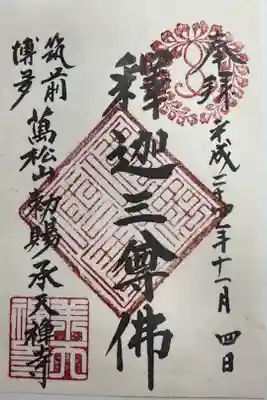 奉拝
平成二十二年十一月 四日
釋迦三尊佛
筑前
博多
萬松山勅賜承天禅寺